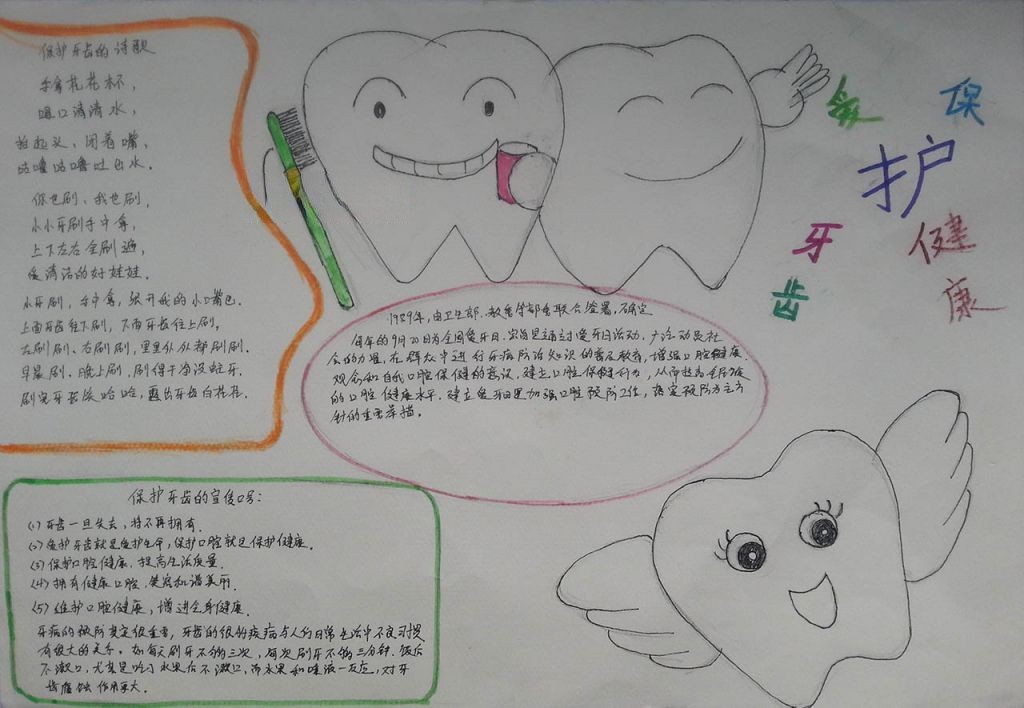 保护牙齿的诗歌
手拿花花杯，
喝口清清水，
抬起头、闭着嘴、
咕噜咕噜吐出水。
你也刷、我也刷，
小小牙刷手中拿，
上下左右全刷遍，
爱清洁的好娃娃。
小牙刷，手中拿，张开我的小嘴巴。
上面牙齿往下刷，下面牙齿往上刷。
左刷刷、右刷刷，里里外外都刷刷。
早晨刷、晚上刷，刷得干净没蛀牙。
刷完牙齿笑哈哈，露出牙齿白花花。
爱 保
护
牙 健
齿 康
1989年，由卫生部、教委等部委联合签署，确定
每年的9月20日为全国爱牙日。宗旨是通过爱牙日活动，广泛动员社
会的力量，在群众中进行牙病防治知识的普及教育，增强口腔健康
观念和自我口腔保健的意识，建立口腔保健行为，从而提高全民族
的口腔健康水平。建立爱牙日是加强口腔预防工作，落实预防为主方
针的重要举措。
保护牙齿的宣传口号：
(1) 牙齿一旦失去，将不再拥有。
(2) 爱护牙齿就是爱护生命，保护口腔就是保护健康。
(3) 保护口腔健康，提高生活质量。
(4) 拥有健康口腔，笑容和谐美丽。
(5) 维护口腔健康，增进全身健康。
牙病的预防其实很重要，牙齿的很多疾病与人们日常生活中不良习惯
有很大的关系。如每天刷牙不够三次，每次刷牙不够三分钟。饭后
不漱口，尤其是吃了水果后不漱口，而水果和唾液一反应，对牙
齿腐蚀作用更大。